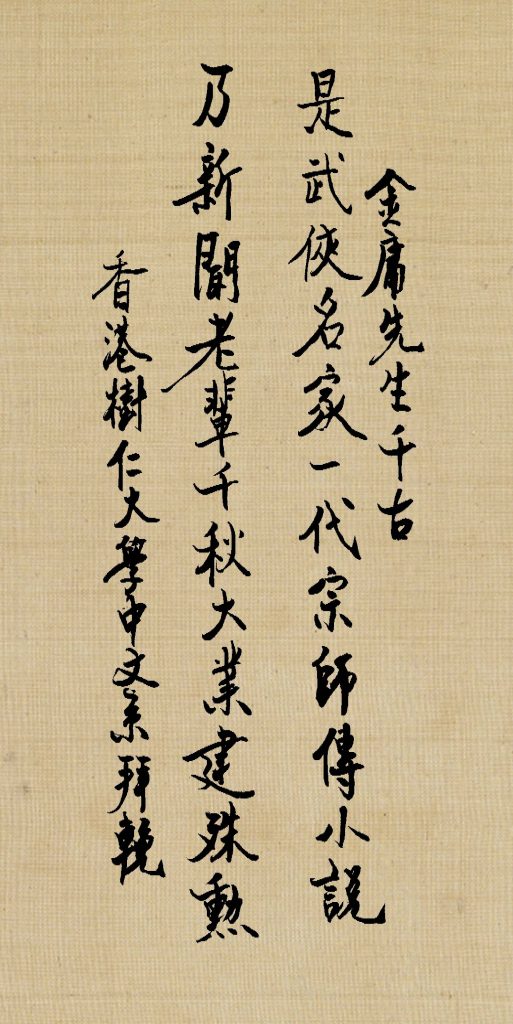 金庸先生千古
是武俠名家一代宗師傳小說
乃新聞老輩千秋大業建殊勲
香港樹仁大學中文系拜輓